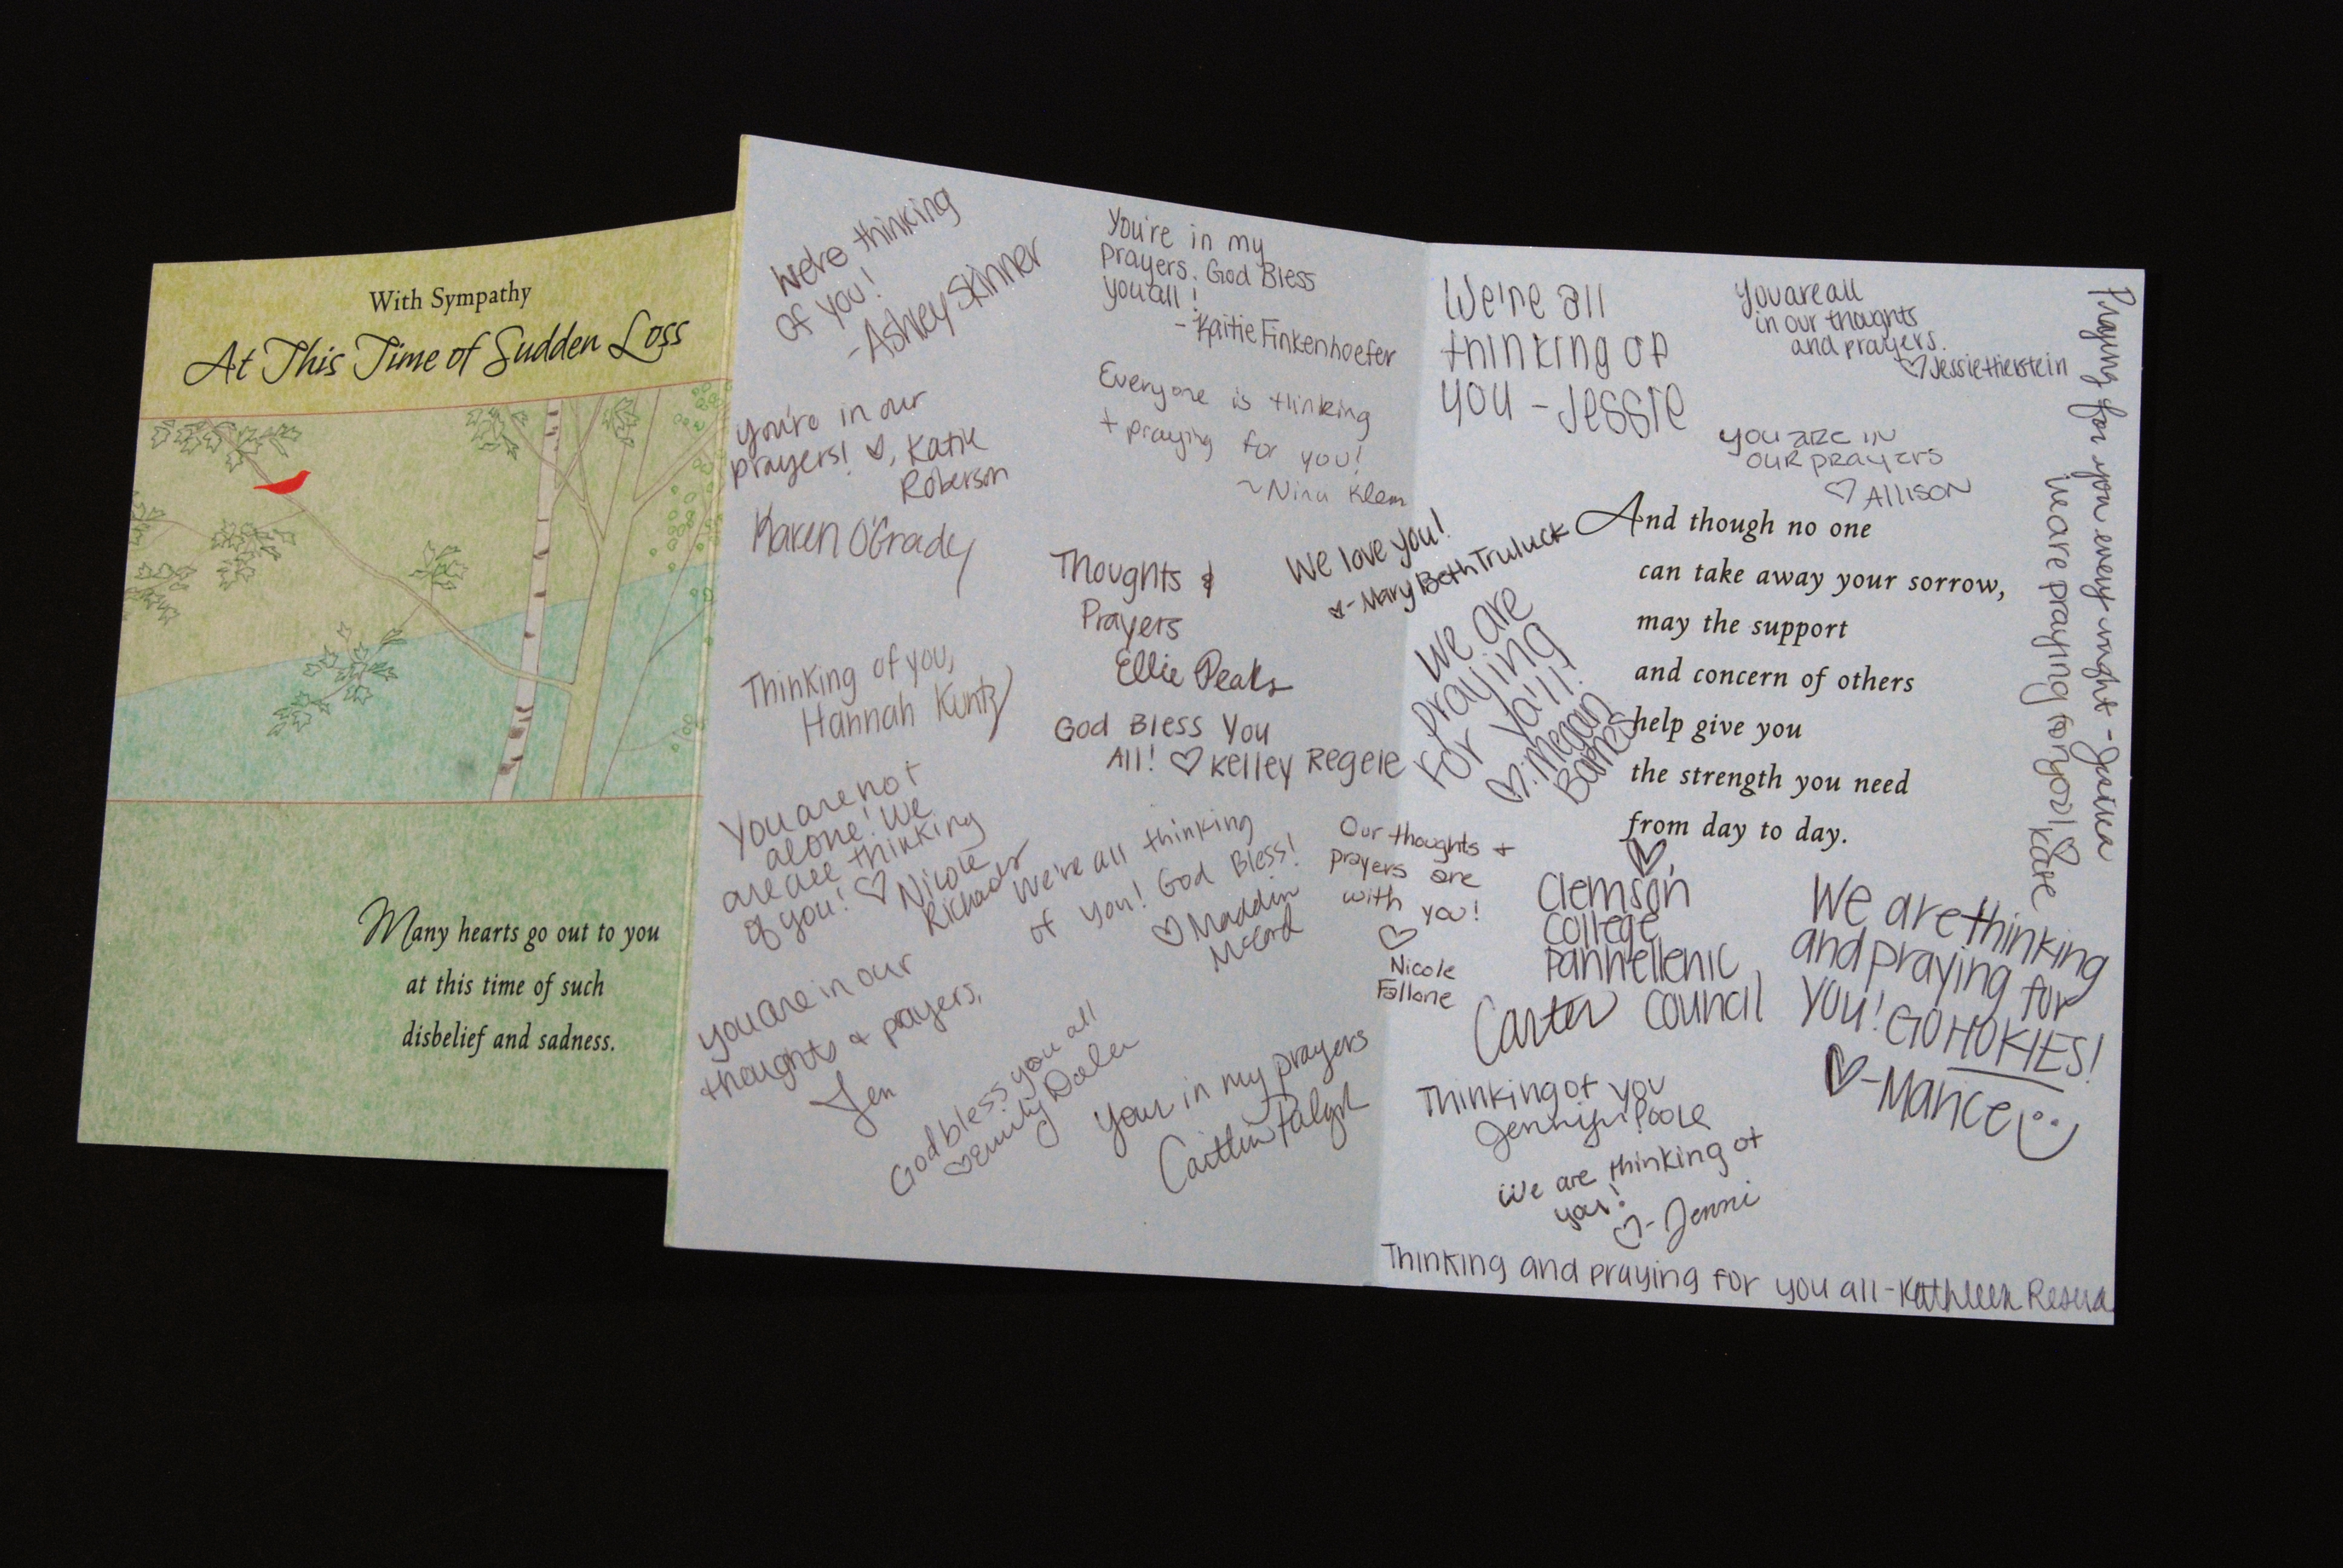 With Sympathy
At This Time of Sudden Loss
Many hearts go out to you
at this time of such
disbelief and sadness.
We're thinking
of you!
-Ashley Skinner
You're in our
prayers! ♡, Katie
Roberson
Karen O'Grady
Thinking of you,
Hannah Kuntz
You are not
alone! We
are all thinking
of you! ♡ Nicole
Richards
You are in our
thoughts & prayers,
Jen
God bless you all
♡ Emily
You're in my
prayers. God Bless
you all!
- Kaitie Finkenhoefer
Everyone is thinking
+ praying for you!
~Nina Klem
Thoughts &
Prayers
Ellie Peaks
We love you!
♡-Mary Beth Truluck
God Bless You
All! ♡ Kelley Regele
We're all thinking
of you! God Bless!
♡ Maddin
McCord
Our thoughts +
prayers are
with you!
♡
Nicole
Fallone
Your in my prayers
Caitlin
We're all
thinking of
you - Jessie
You are all
in our thoughts
and prayers.
♡ Jessie
you are in
our prayers
♡ Allison
Praying for you every night - Jessica
We are praying for you! ♡ Kate
We are
praying
for ya'll!
♡: Megan
Barnes
And though no one
can take away your sorrow,
may the support
and concern of others
help give you
the strength you need
from day to day.
♡
Clemson
College
Panhellenic
Council
Carter
We are thinking
and praying for
you! GO HOKIES!
♡-Mance
Thinking of you
Poole
We are thinking of
you!
♡- Jenni
Thinking and praying for you all - Kathleen